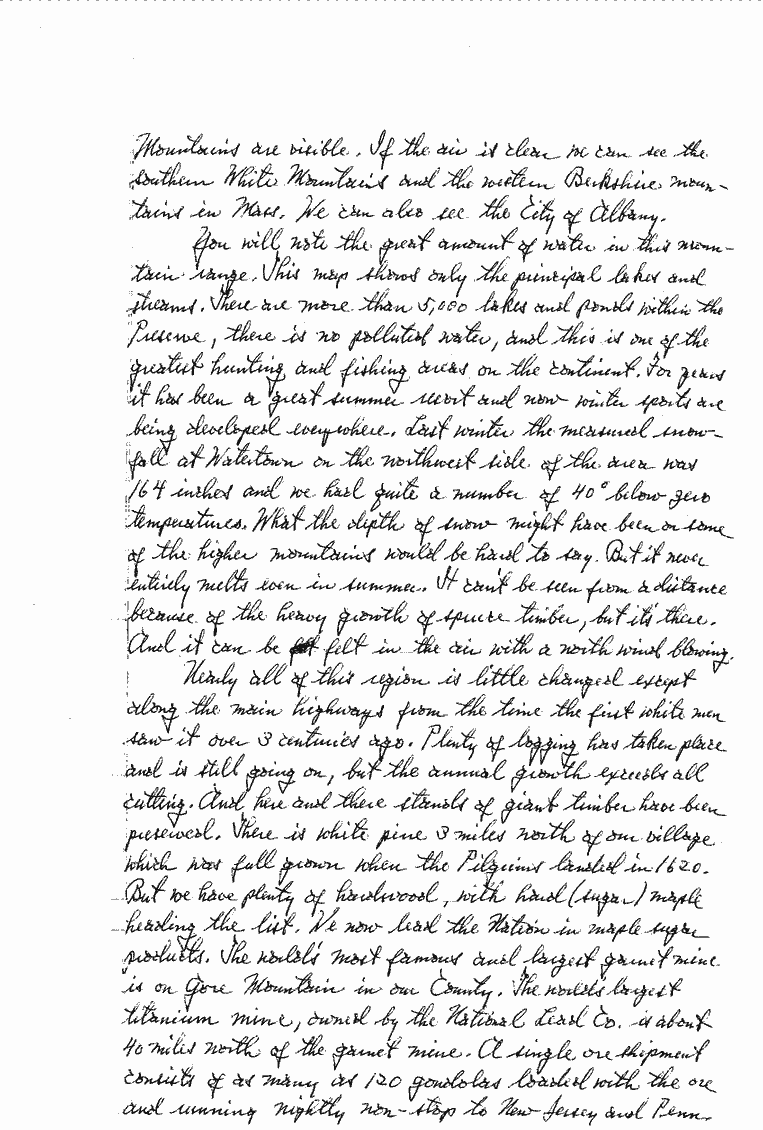 Mountains are visible. If the air is clear we can see the
southern White Mountains and the western Berkshire moun-
tains in Mass. We can also see the City of Albany.
You will note the great amount of water in this moun-
tain range. This map shows only the principal lakes and
streams. There are more than 5,000 lakes and ponds within the
Preserve, there is no polluted water, and this is one of the
greatest hunting and fishing areas on the continent. For years
it has been a great summer resort and now winter sports are
being developed everywhere. Last winter the measured snow-
fall at Watertown on the northwest side of the area was
164 inches and we had quite a number of 40° below zero
temperatures. What the depth of snow might have been on some
of the higher mountains would be hard to say. But it never
entirely melts even in summer. It can't be seen from a distance
because of the heavy growth of spruce timber, but it's there.
And it can be felt in the air with a north wind blowing.
Nearly all of this region is little changed except
along the main highways from the time the first white men
saw it over 3 centuries ago. Plenty of logging has taken place
and is still going on, but the annual growth exceeds all
cutting. And here and there stands of giant timber have been
preserved. There is white pine 3 miles north of our village
which was full grown when the Pilgrims landed in 1620.
But we have plenty of hardwood, with hard (sugar) maple
heading the list. We now lead the Nation in maple sugar
products. The world's most famous and largest garnet mine
is on Gore Mountain in our County. The worlds largest
titanium mine, owned by the National Lead Co. is about
40 miles north of the garnet mine. A single ore shipment
consists of as many as 120 gondolas loaded with the ore
and running nightly non-stop to New Jersey and Penn.